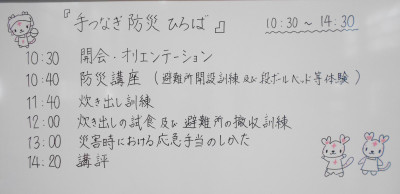 『手つなぎ防災ひろば』 10:30 ~ 14:30
10:30 開会・オリエンテーション
10:40 防災講座 (避難所開設訓練及び段ボールベット等体験)
11:40 炊き出し訓練
12:00 炊き出しの試食及び避難所の撤収訓練
13:00 災害時における応急手当のしかた
14:20 講評